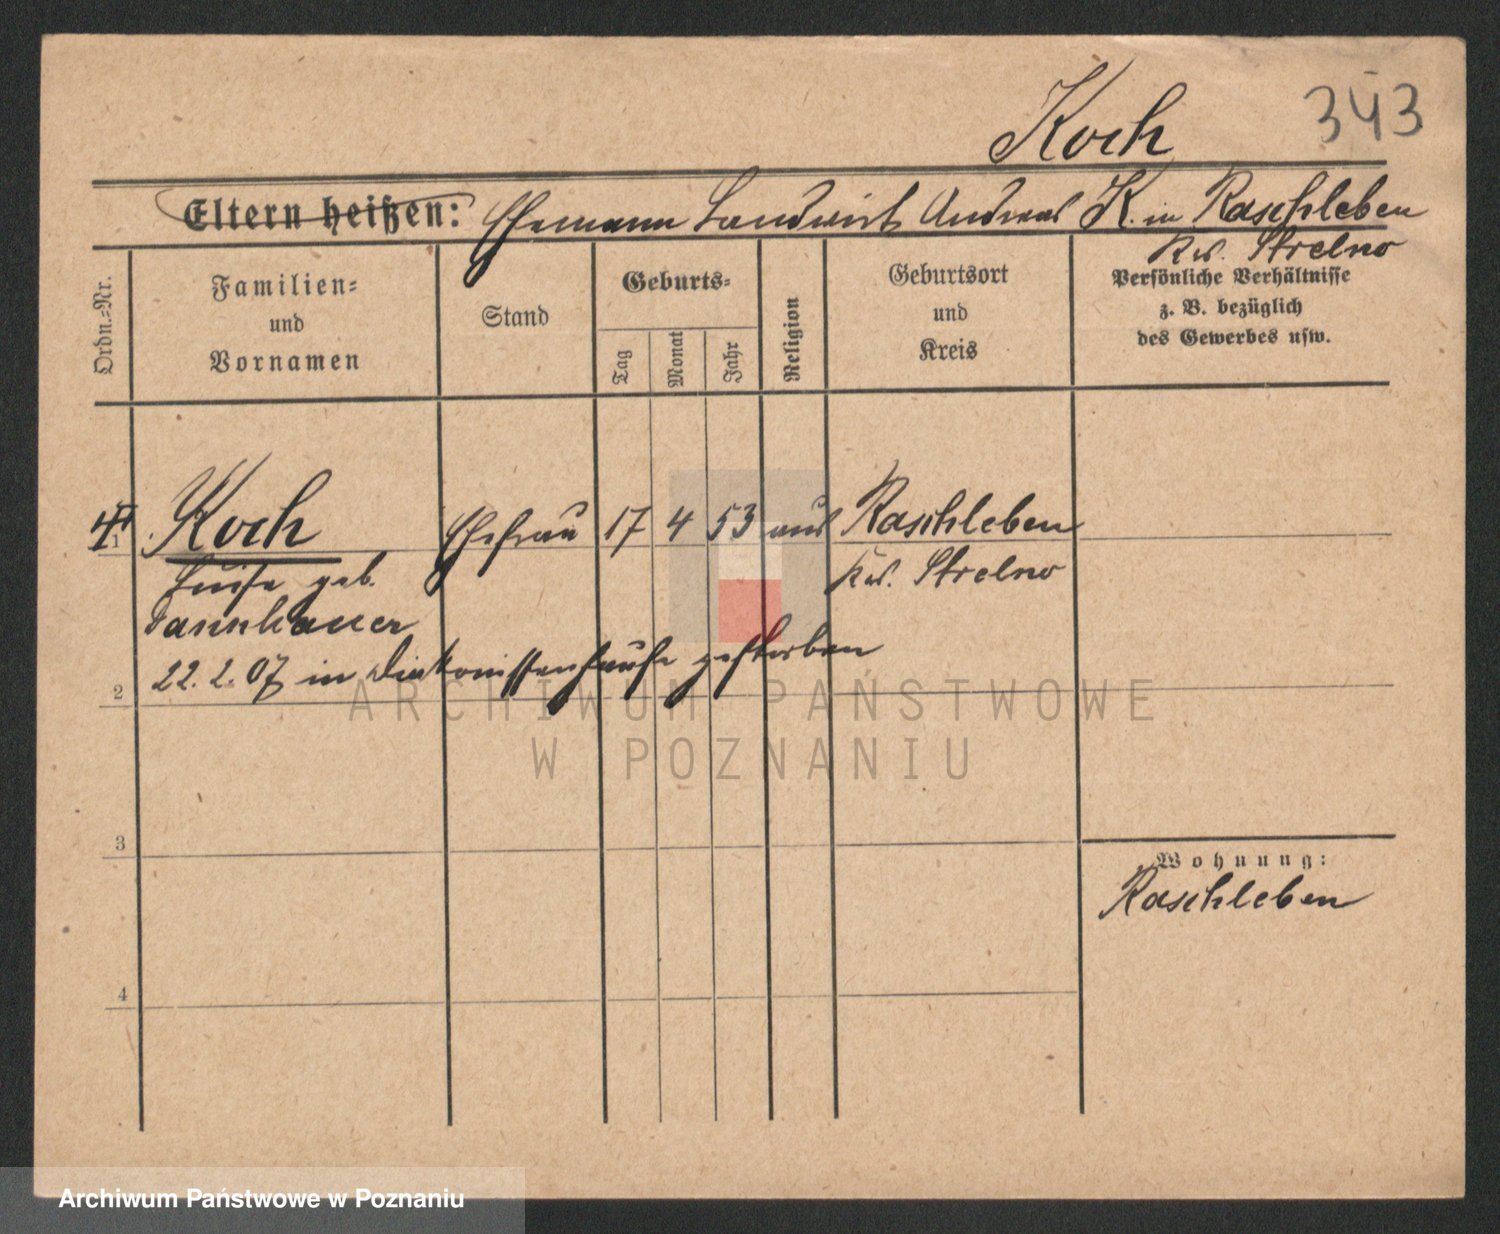 Koch
343
Eltern heißen: Ehemann Landwirt Andreas K. in Raschleben
Kr. Strelno
Ordn.-Nr.
Familien-
und
Vornamen
Stand
Geburts-
Tag
Monat
Jahr
Religion
Geburtsort
und
Kreis
Persönliche Verhältnisse
z. B. bezüglich
des Gewerbes usw.
1
Koch Ehefrau 17 4 53 Raschleben
Luise geb. Kr. Strelno
Tannhauer
22. 2. 07 in Diakonissenhause gestorben
2
ARCHIWUM PAŃSTWOWE
W POZNANIU
3
Wohnung:
Raschleben
4
Archiwum Państwowe w Poznaniu